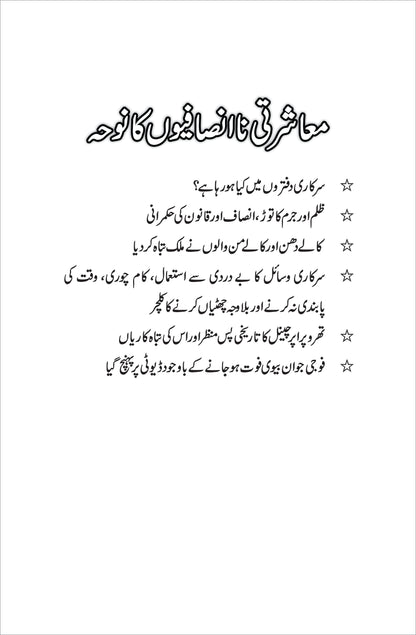 معاشرتی ناانصافیوں کا نوحہ
☆ سرکاری دفتروں میں کیا ہو رہا ہے؟
☆ ظلم اور جرم کا توڑ، انصاف اور قانون کی حکمرانی
☆ کالے دھن اور کالے من والوں نے ملک تباہ کر دیا
☆ سرکاری وسائل کا بے دردی سے استعمال، کام چوری، وقت کی
پابندی نہ کرنے اور بلاوجہ چھٹیاں کرنے کا کلچر
☆ تھرو پراپر چینل کا تاریخی پس منظر اور اس کی تباہ کاریاں
☆ فوجی جوان بیوی فوت ہو جانے کے باوجود ڈیوٹی پر پہنچ گیا